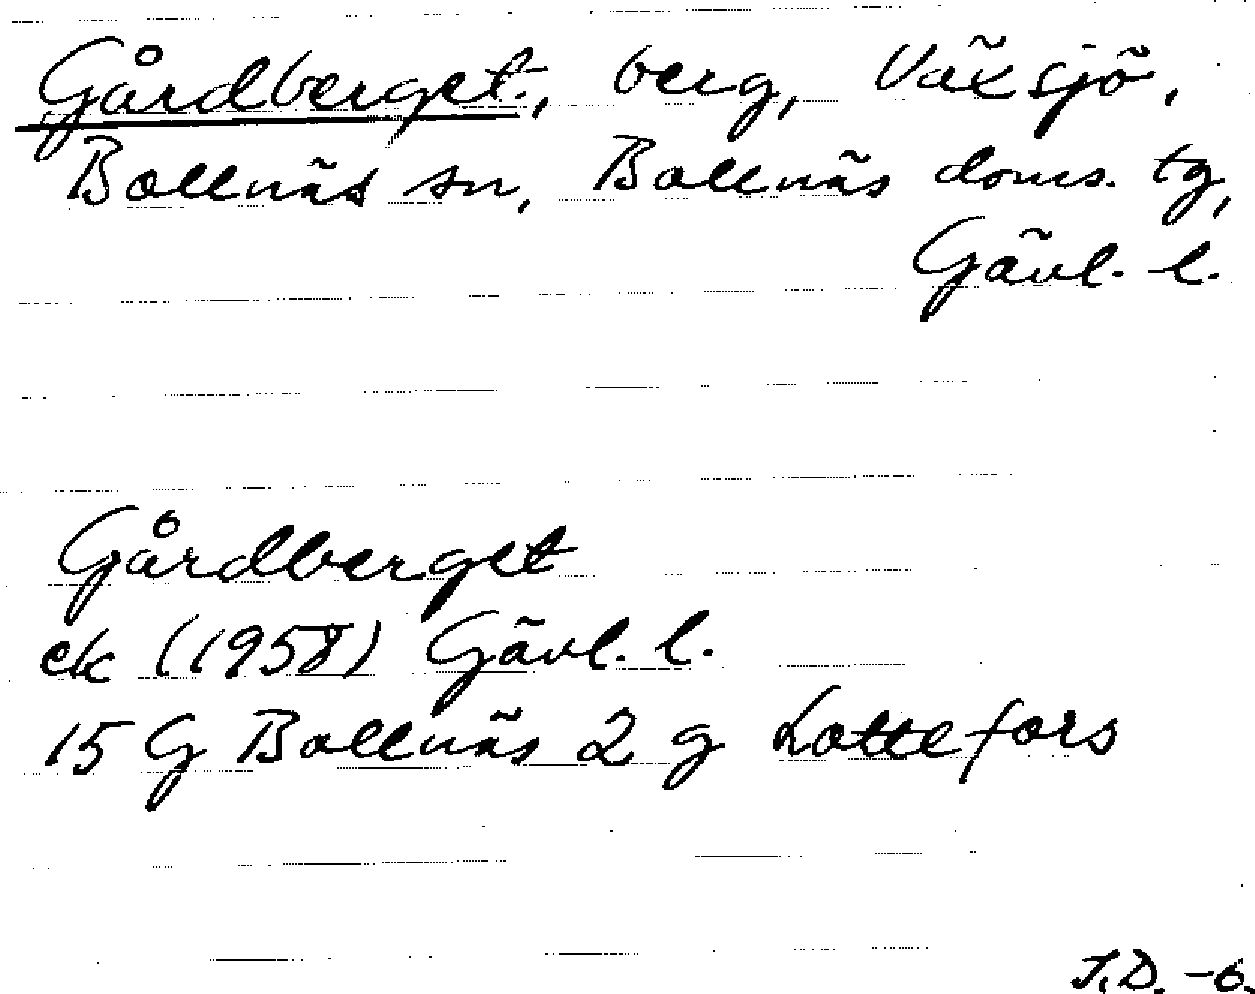 Gårdberget, berg, Växsjö,
Bollnäs sn, Bollnäs doms. tg,
Gävl. l.
Gårdberget
ek (1958) Gävl. l.
15 G Bollnäs 2 g Lottefors
J.D. -6.